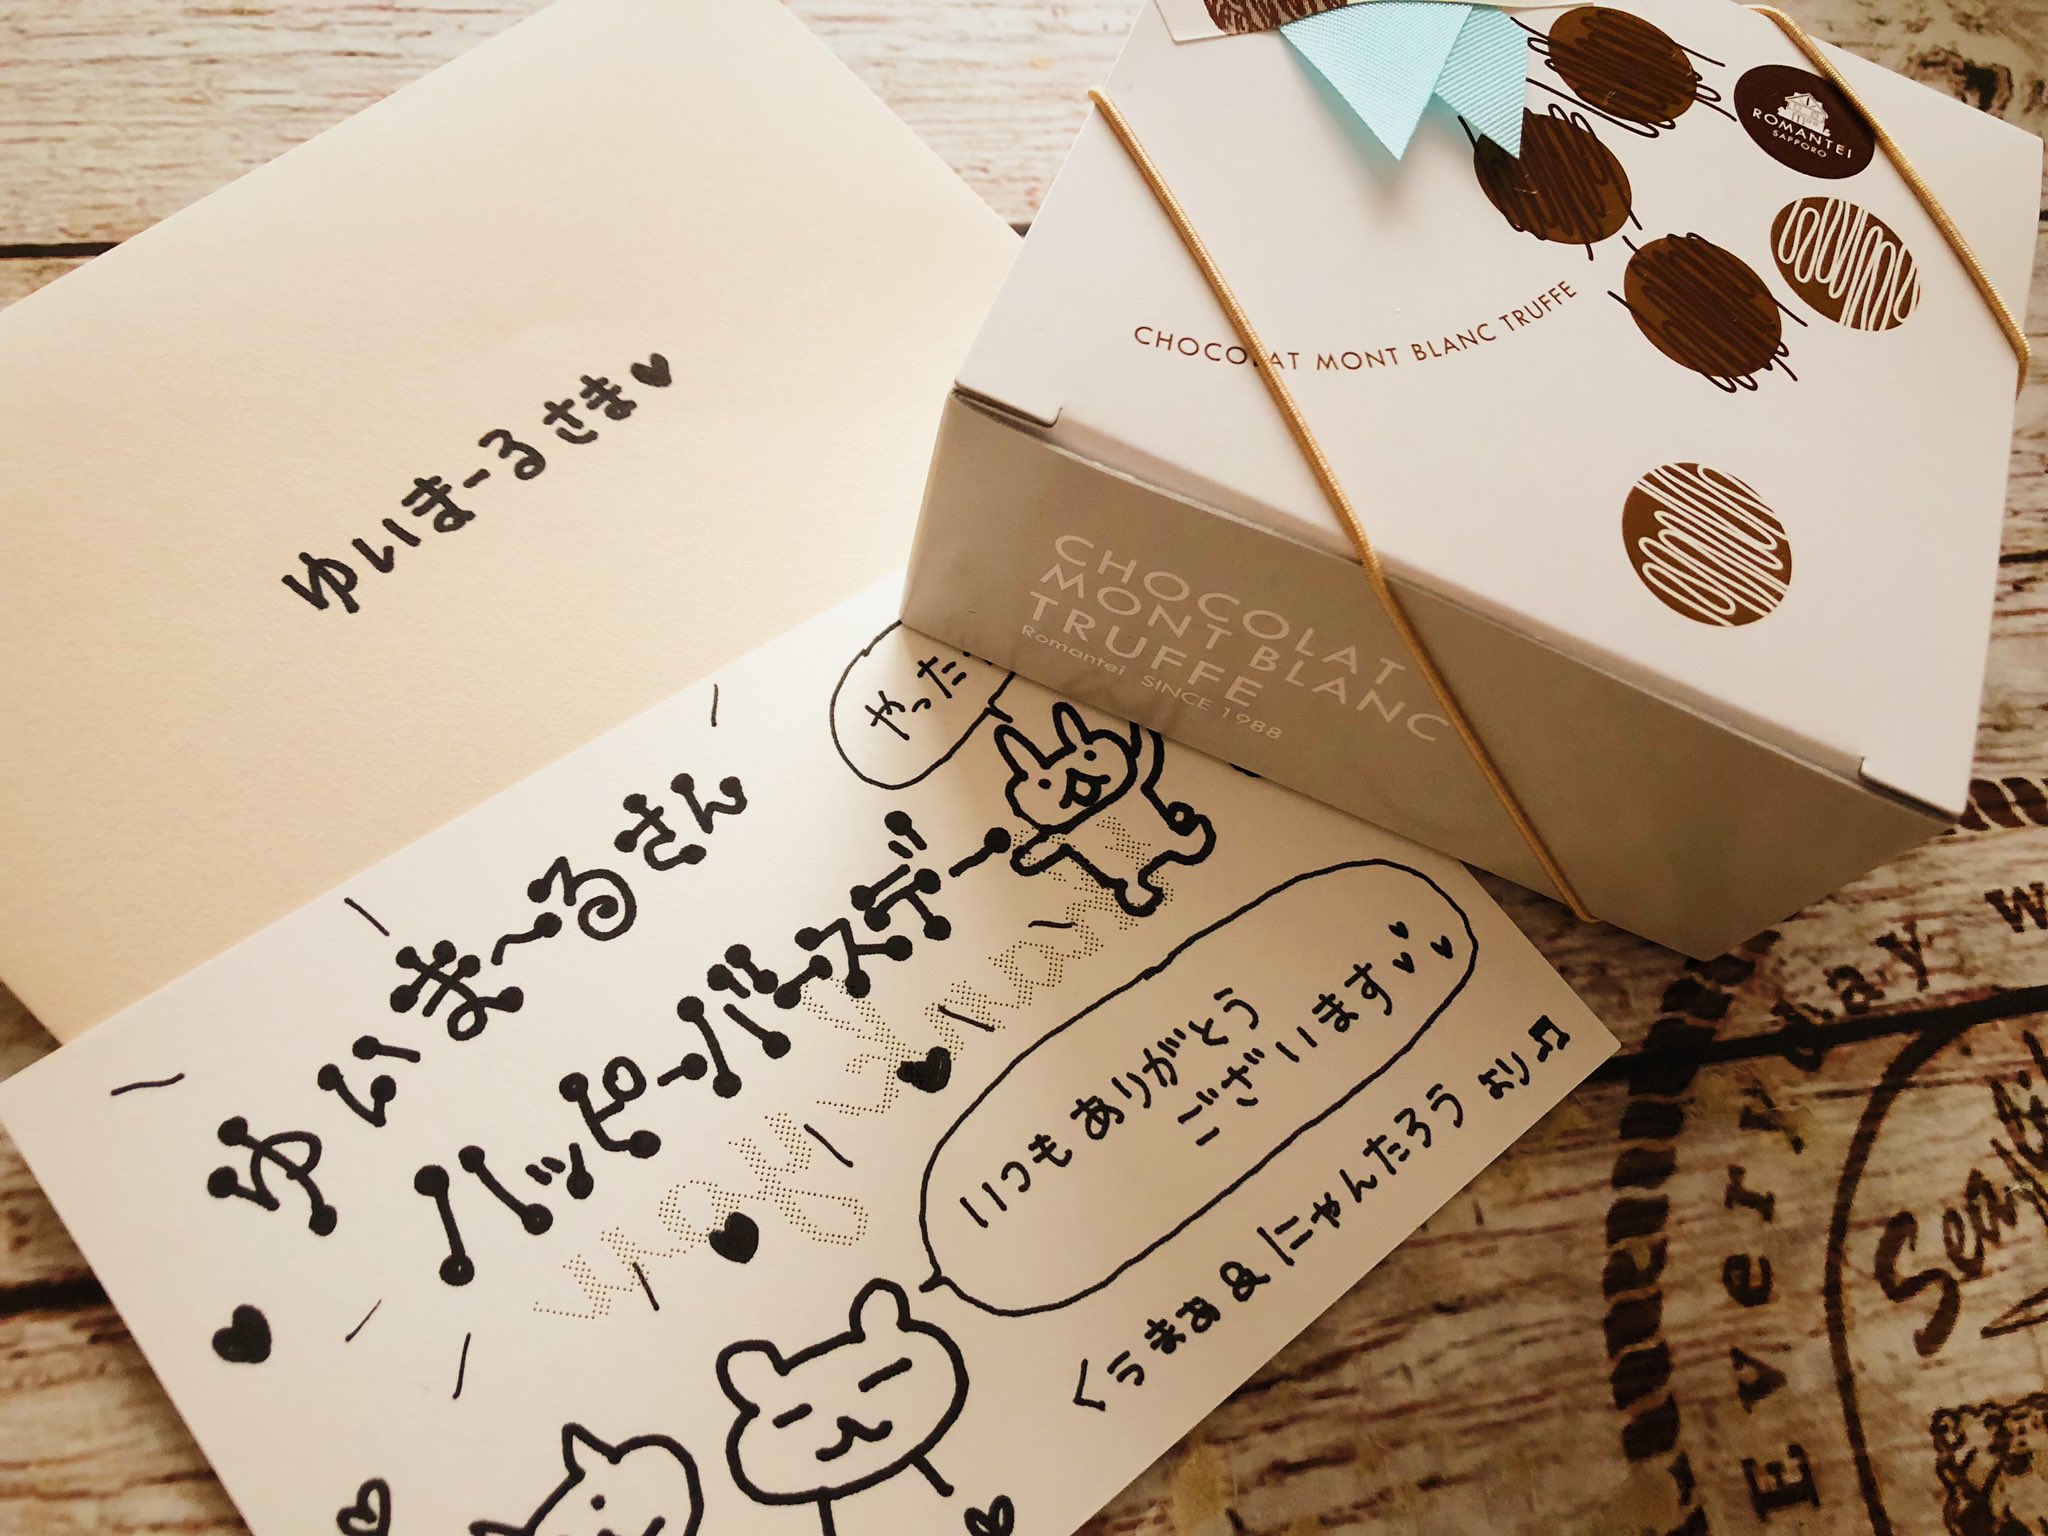 ゆいまーるさま♥
ROMANTEI
SAPPORO
CHOCOLAT MONT BLANC TRUFFE
CHOCOLAT
MONT BLANC
TRUFFE
Romantei SINCE 1988
やった
ゆいま〜るさん
ハッピーバースデー
いつもありがとう
ございます
くぅまぁ&にゃんたろう より♫
Every day